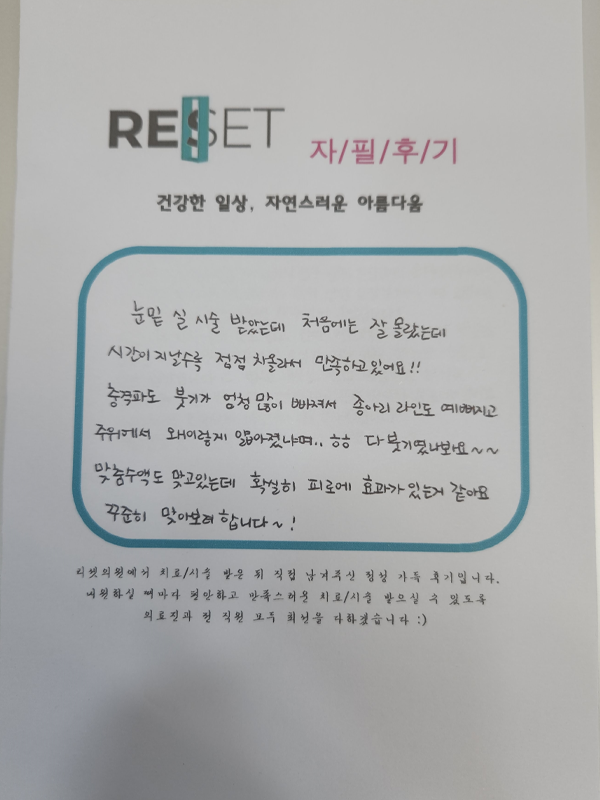 RESET
자/필/후/기
건강한 일상, 자연스러운 아름다움
눈밑 실 시술 받았는데 처음에는 잘 몰랐는데
시간이 지날수록 점점 차올라서 만족하고 있어요!!
충격파도 붓기가 엄청 많이 빠져서 종아리 라인도 예뻐지고
주위에서 왜이렇게 얇아졌냐며.. ㅎㅎ 다 붓기였나봐요~~
맞춤수액도 맞고있는데 확실히 피로에 효과가 있는거 같아요
꾸준히 맞아보려 합니다~!
리셋의원에서 치료/시술 받은 뒤 직접 남겨주신 정성 가득 후기입니다.
내원하실 때마다 편안하고 만족스러운 치료/시술 받으실 수 있도록
의료진과 전 직원 모두 최선을 다하겠습니다 :)